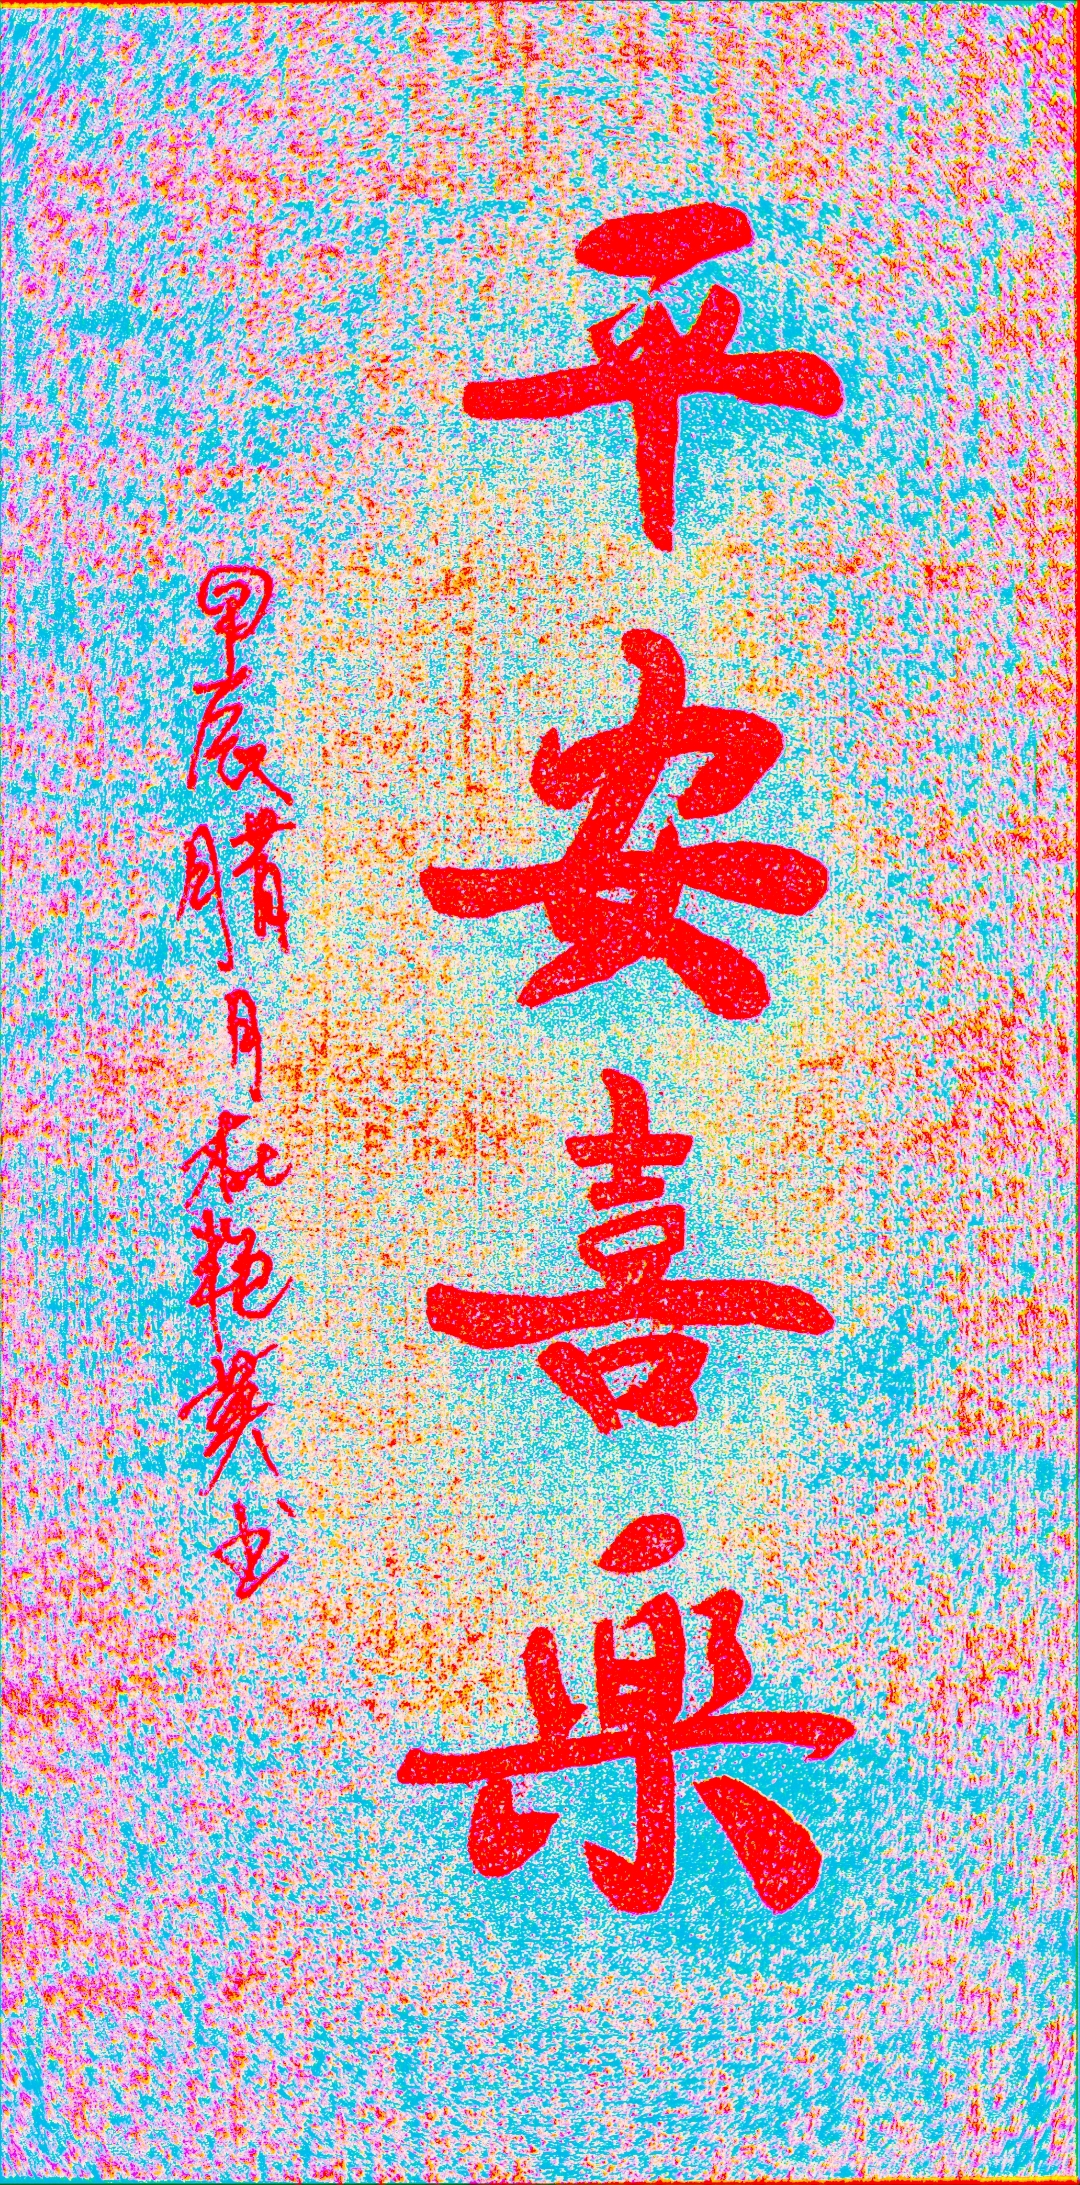 平安喜樂
甲辰腊月艳英书